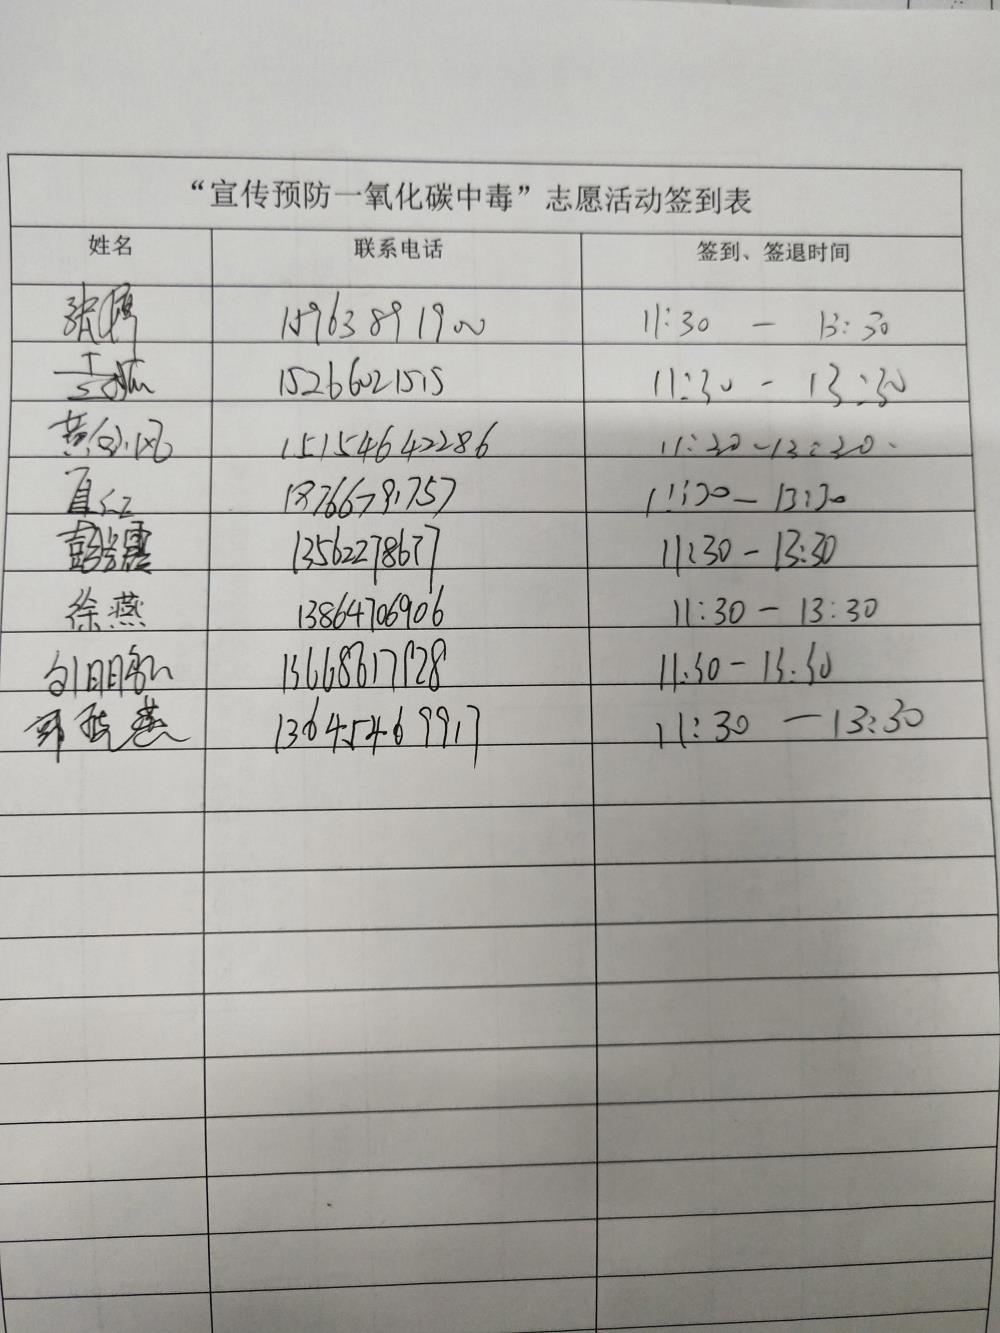 “宣传预防一氧化碳中毒”志愿活动签到表
姓名 联系电话 签到、签退时间
张 15963891900 11:30 — 13:30
15266021515 11:30 - 13:30
黄 15154642286 11:30-13:30
夏红 18766791757 11:30-13:30
彭 13562278677 11:30-13:30
徐燕 13864706906 11:30-13:30
13668617128 11:30-13:30
燕 13645469917 11:30 —13:30